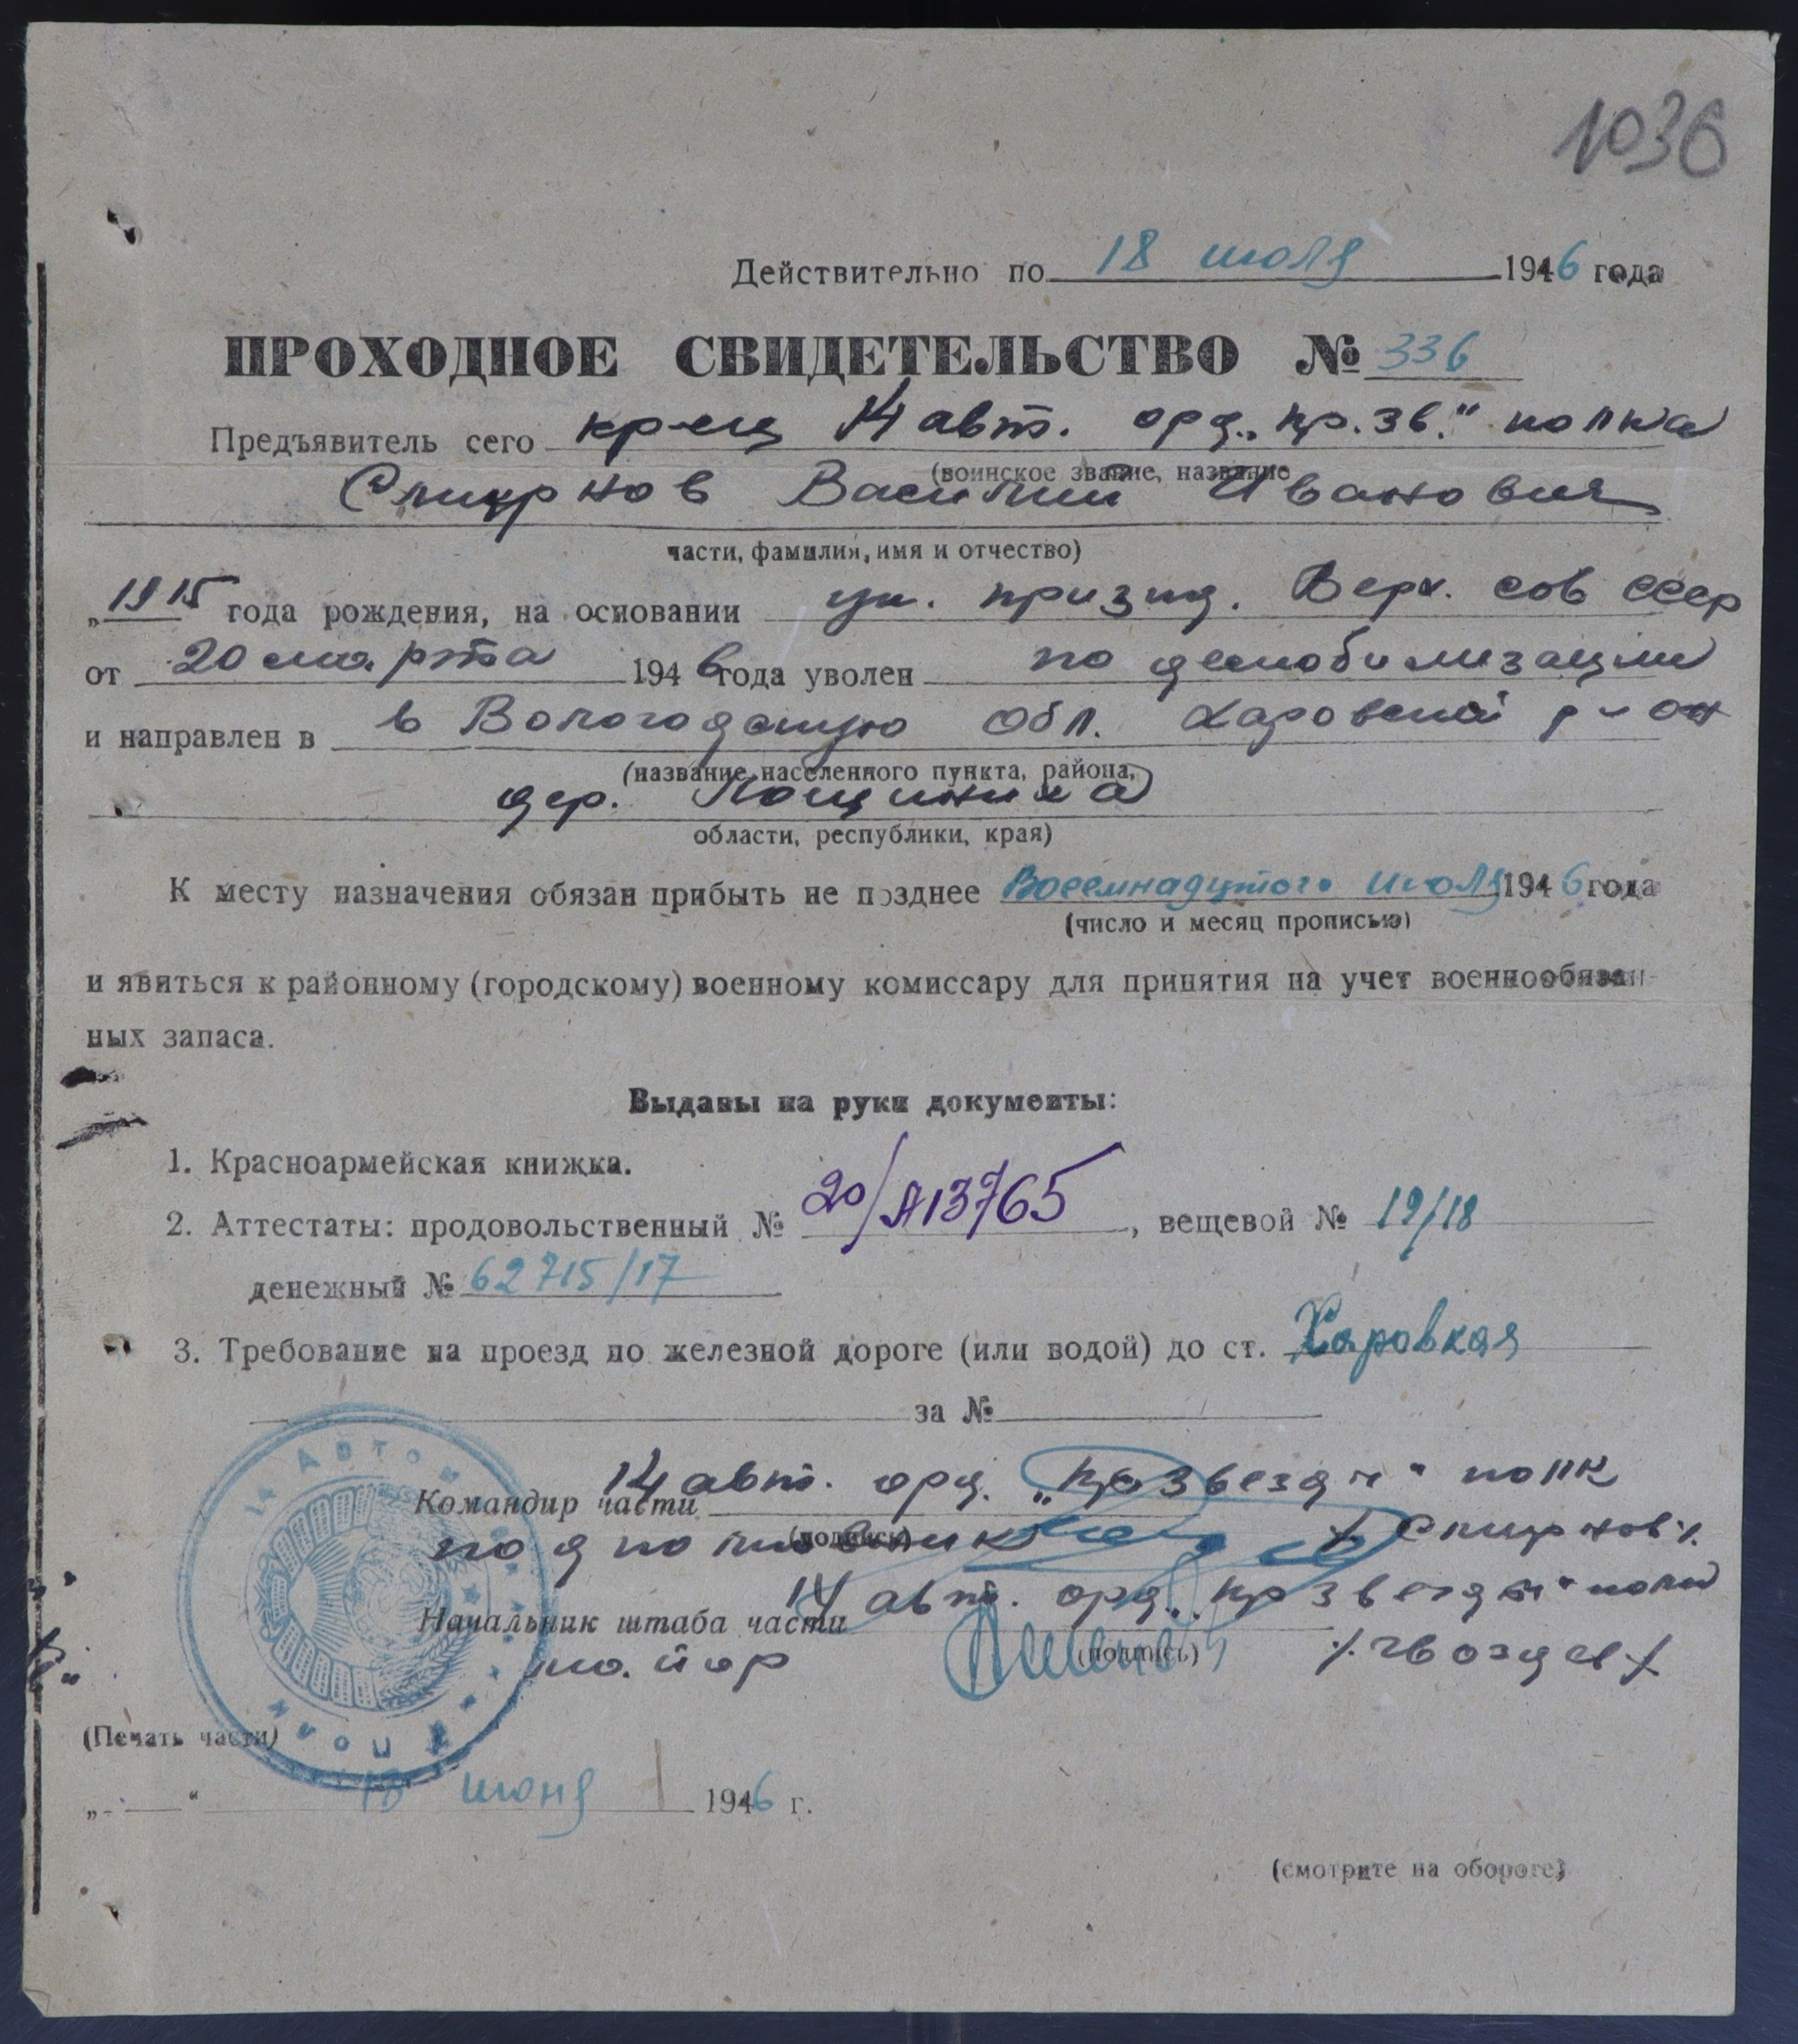 1036
Действительно по 18 июля 1946 года
ПРОХОДНОЕ СВИДЕТЕЛЬСТВО № 336
Предъявитель сего кр-ец 14 авт. орд. „кр. зв." полка
(воинское звание, название
Смирнов Василий Иванович
части, фамилия, имя и отчество)
„1915 года рождения, на основании ук. през. Верх. Сов СССР
от 20 марта 1946 года уволен по демобилизации
и направлен в в Вологодскую обл. Харовский р-он
(название населенного пункта, района,
дер.
области, республики, края)
К месту назначения обязан прибыть не позднее Восемнадцатого июля 1946 года
(число и месяц прописью)
и явиться к районному (городскому) военному комиссару для принятия на учет военнообязан-
ных запаса.
Выданы на руки документы:
1. Красноармейская книжка.
2. Аттестаты: продовольственный № 20/А13765, вещевой № 19/18
денежный № 62715/17
3. Требование на проезд по железной дороге (или водой) до ст. Харовкая
за №
14 авт. орд. „кр звезды" полк
Командир части
(подпись)
подполковник /Смирнов/.
14 авт. орд. „кр звезды" полк
Начальник штаба части
(подпись)
майор /.Гвоздев/
(Печать части)
„ " 18 июня 1946 г.
(смотрите на обороте)